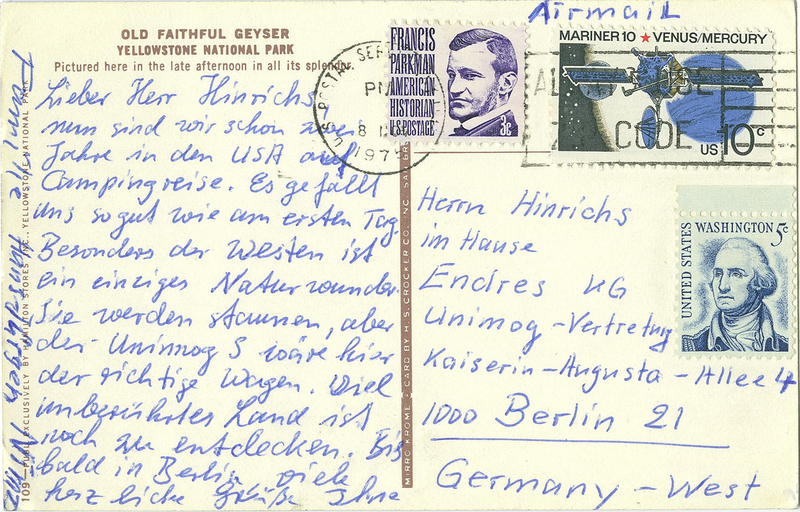 OLD FAITHFUL GEYSER
YELLOWSTONE NATIONAL PARK
Pictured here in the late afternoon in all its splendor.
Lieber Herr Hinrichs
nun sind wir schon zwei
Jahre in den USA auf
Campingreise. Es gefällt
uns so gut wie am ersten Tag.
Besonders der Westen ist
ein einziges Naturwunder.
Sie werden staunen, aber
der Unimog S wäre hier
der richtige Wagen. Viel
unberührtes Land ist
noch zu entdecken. Bis
bald in Berlin, viele
herzliche Grüße Ihre
109
PUB. EXCLUSIVELY BY HAMILTON STORES INC., YELLOWSTONE NATIONAL PARK
MIRRO KROME CARD BY H. S. CROCKER CO. INC.
Airmail
FRANCIS
PARKMAN
AMERICAN
HISTORIAN
U.S. POSTAGE
3c
U.S. POSTAL SER
PM
8
1975
MARINER 10 ★ VENUS/MERCURY
US 10c
ZIP CODE
UNITED STATES
WASHINGTON 5c
Herrn Hinrichs
im Hause
Endres KG
Unimog-Vertretung
Kaiserin-Augusta-Allee 4
1000 Berlin 21
Germany-West